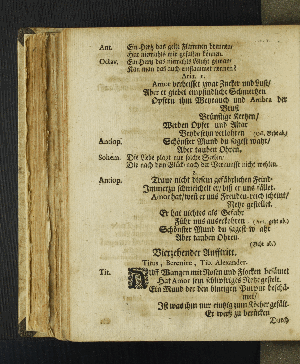 Ant. Ein Hertz das gelst Flammen
Hat niemahls mir gefallen können.
Octav. Ein Hertz das niemahls
Kan man das auch entflammet nennen?
Aria 1.
Amor verheisset zwar Zucker und Lust/
Aber er giebet empfindliche Schmertzen
Opffern ihm Weyrauch und Ambra der
Brust
Brünstige Kertzen/
Werden Opfer und Altar
verlohren
Antiop. Schönster Mund du sagest wahr/
Aber tauben Ohren.
Sohem. Die Liebe plagt nur solche Seelen/
Die nach dem Glück nach der Vernunfft nicht wehlen.
2.
Antiop. Traue nicht diesem gefährlichen Feind/
Immerzu schmeichelt er/ biß er uns fället.
Amor hat/ weil er uns Freuden-reich scheint/
Netze gestellet.
Er hat nichts als Gefahr
Für uns auserkohren.
Schönster Mund du sagest wahr
Aber tauben Ohren.
(Geht ab.)
Vierzehender Aufftritt.
Titus, Berenice, Tib. Alexander.
Tit. Auff Wangen mit Rosen und Flocken besäumet
Hat Amor sein schlüpfriges Netze gestellt.
Ein Mund der den bluttgen Purpur beschä-
met/
Ist was ihm nur einzig zum Köder gefällt.
Er weiß zu berücken
Durch